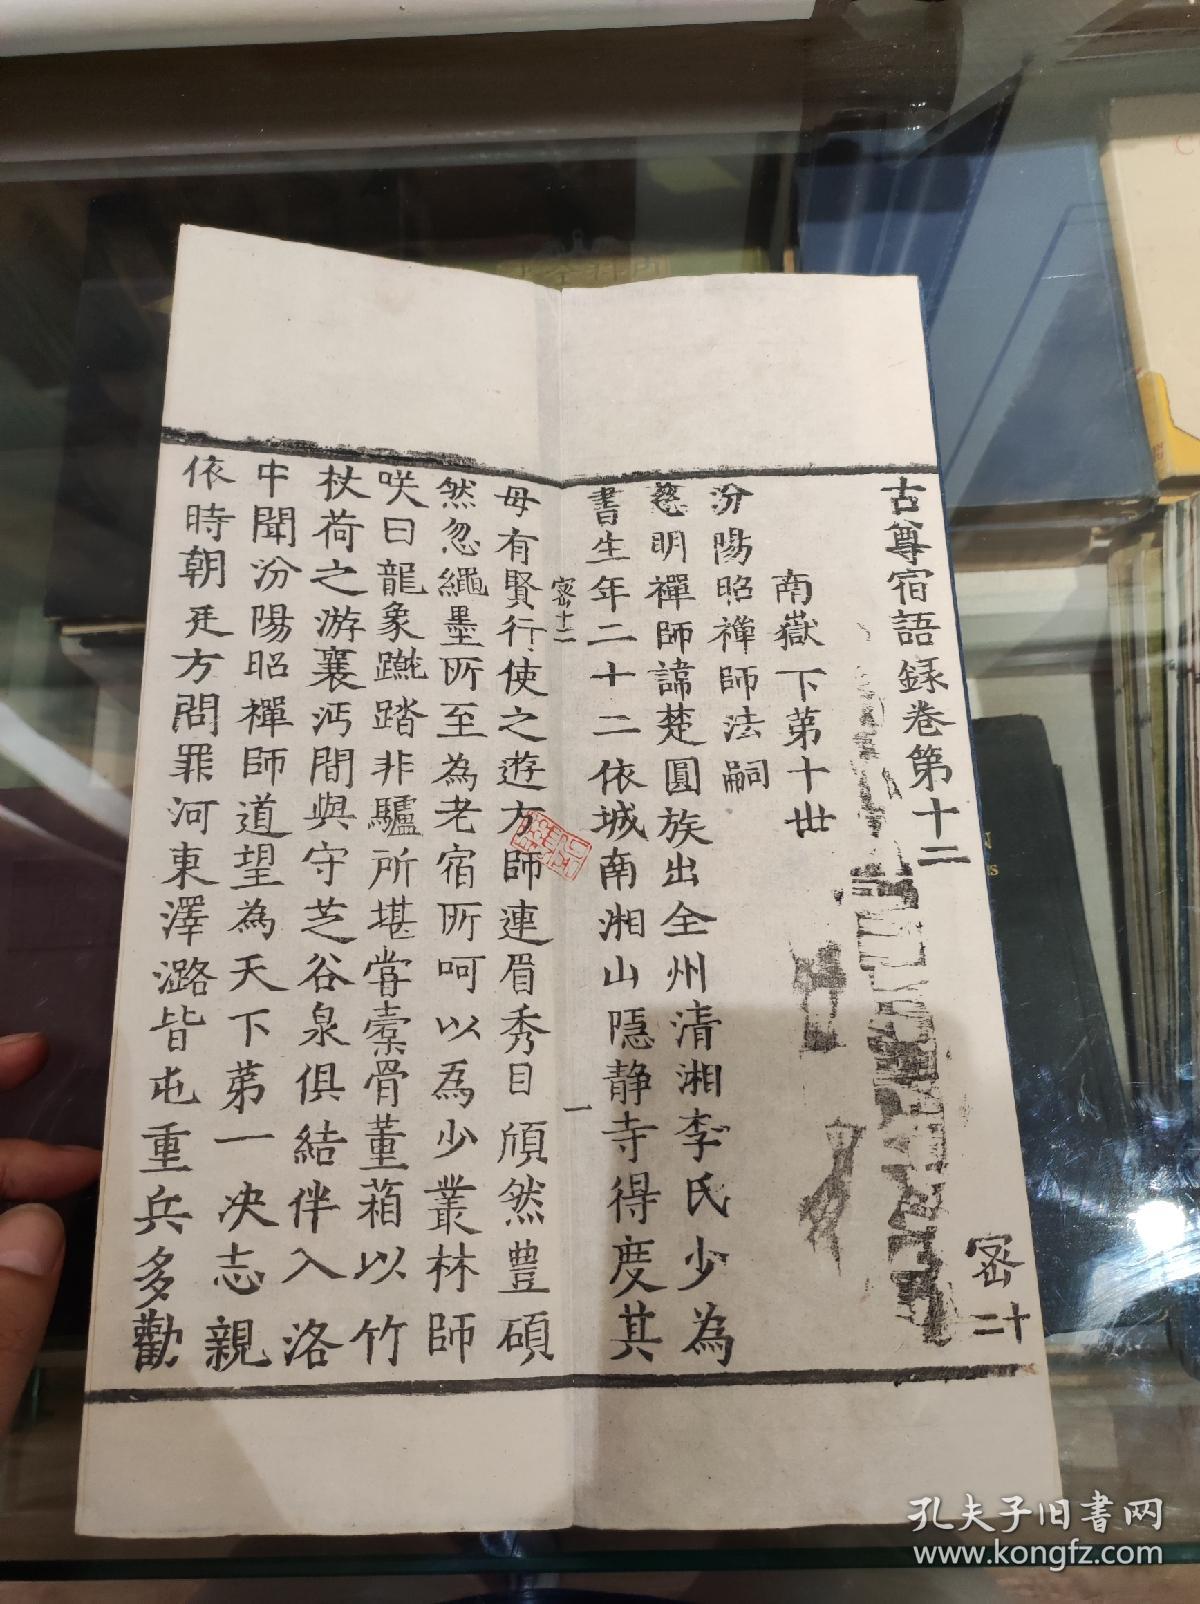 古尊宿語録卷第十二
密十二
南嶽下第十世
汾陽昭禪師法嗣
慈明禪師諱楚圓族出全州清湘李氏少為
書生年二十二依城南湘山隱静寺得度其
密十二
一
母有賢行使之遊方師連眉秀目頎然豊碩
然忽繩墨所至為老宿所呵以為少叢林師
咲曰龍象蹴踏非驢所堪甞櫜骨董箱以竹
杖荷之游襄沔間與守芝谷泉俱結伴入洛
中聞汾陽昭禪師道望為天下第一决志親
依時朝廷方問罪河東澤潞皆屯重兵多勸
孔夫子旧书网
www.kongfz.com